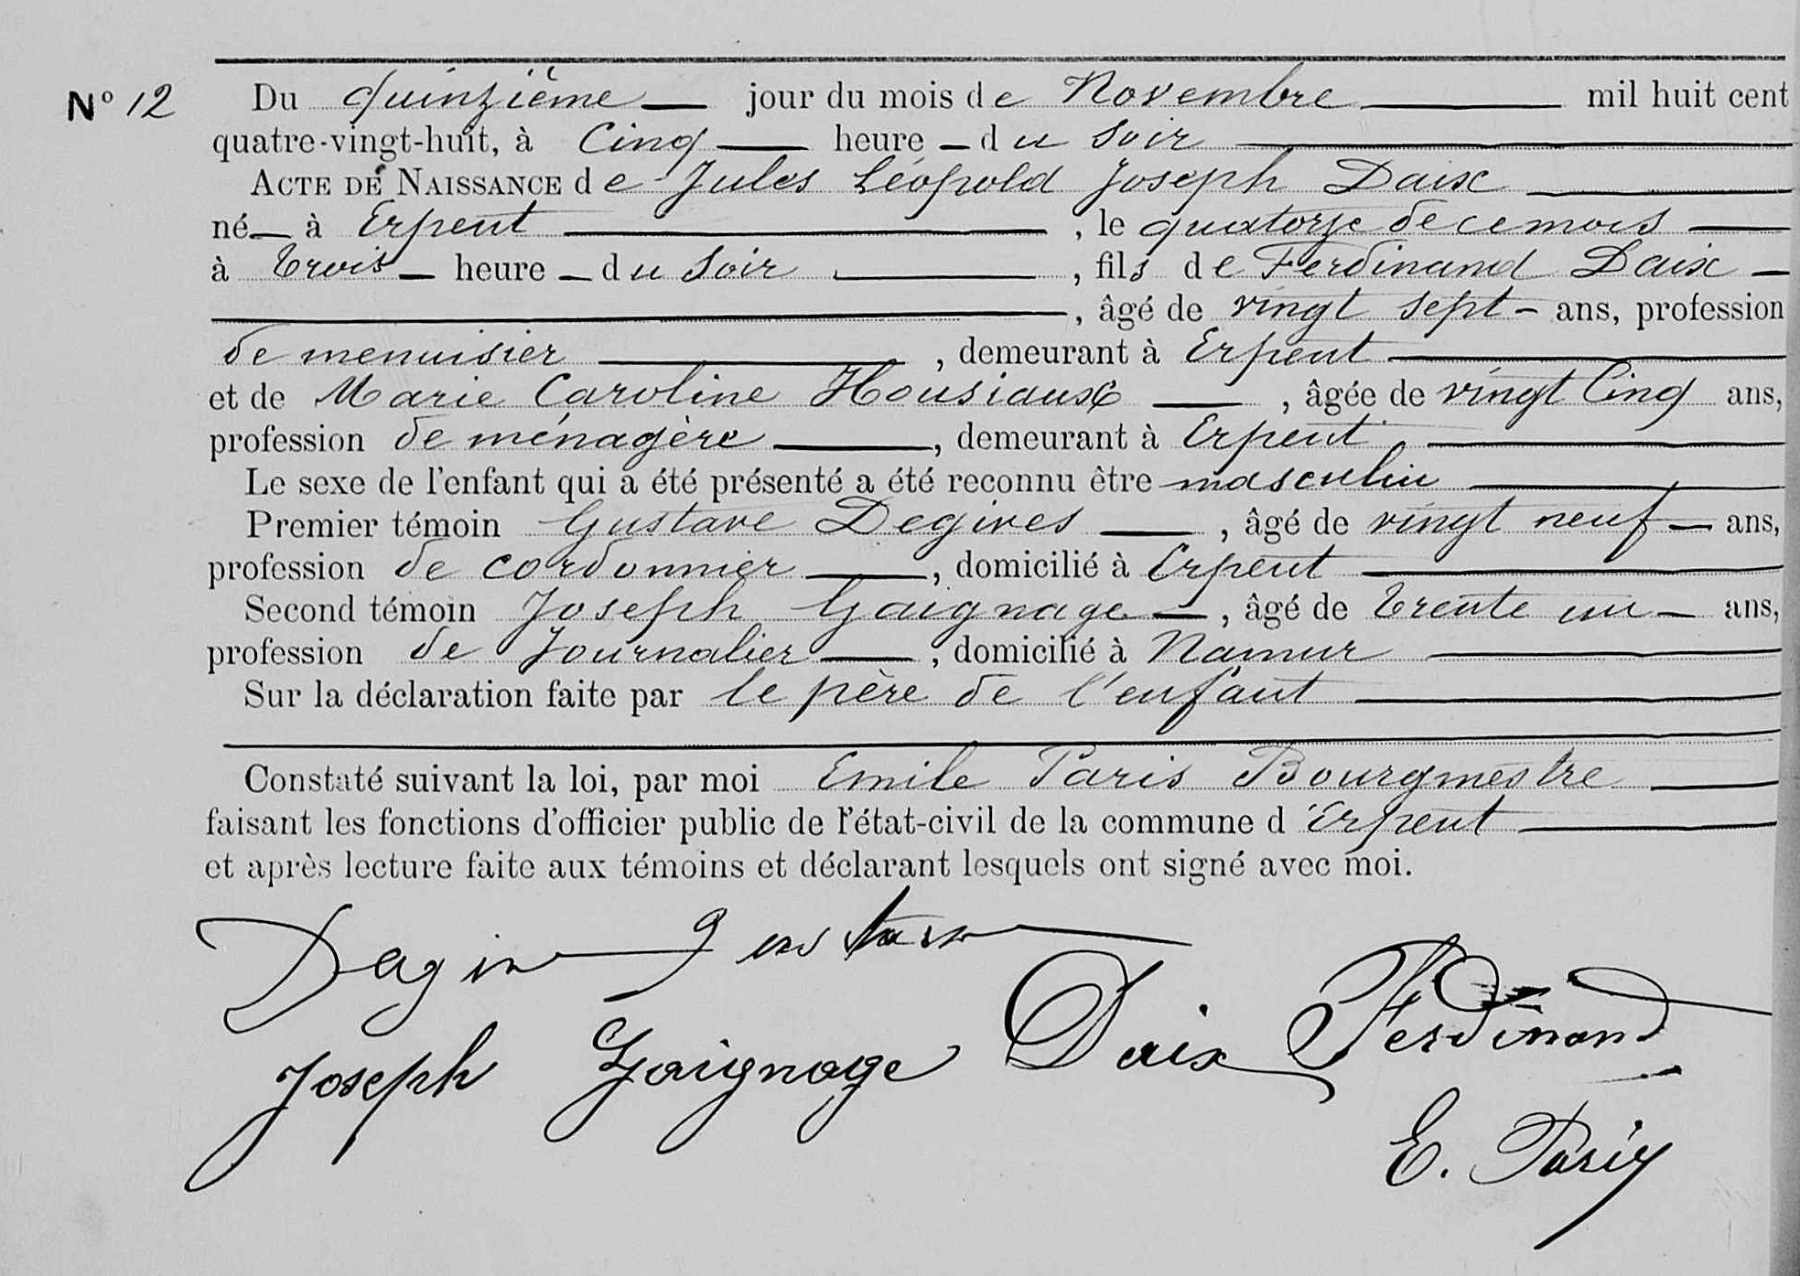 N° 12 Du quinzième jour du mois de Novembre mil huit cent
quatre-vingt-huit, à cinq heure du soir
ACTE DE NAISSANCE de Jules Léopold Joseph Daix
né à Erpent, le quatorze de ce mois
à trois heure du soir, fils de Ferdinand Daix
, âgé de vingt sept ans, profession
de menuisier, demeurant à Erpent
et de Marie Caroline Housiaux, âgée de vingt cinq ans,
profession de ménagère, demeurant à Erpent
Le sexe de l'enfant qui a été présenté a été reconnu être masculin
Premier témoin Gustave Degives, âgé de vingt neuf ans,
profession de cordonnier, domicilié à Erpent
Second témoin Joseph Gaignage, âgé de trente un ans,
profession de Journalier, domicilié à Namur
Sur la déclaration faite par le père de l'enfant
Constaté suivant la loi, par moi Emile Paris Bourgmestre
faisant les fonctions d'officier public de l'état-civil de la commune d'Erpent
et après lecture faite aux témoins et déclarant lesquels ont signé avec moi.
Joseph Gaignage Daix Ferdinand
E. Paris